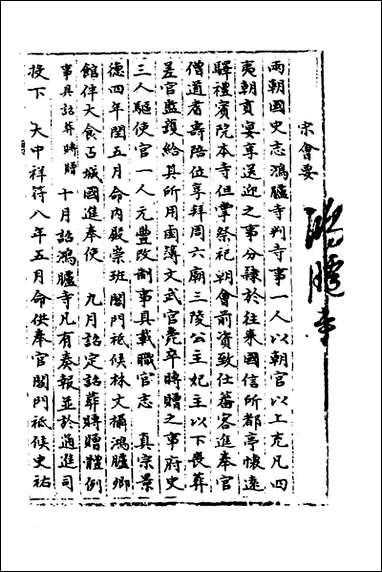 宋會要
鴻臚寺
兩朝國史志鴻臚寺判寺事一人以朝官以上充凡四
夷朝貢宴享送迎之事分隷於往來國信所都亭懷遠
驛禮賓院本寺但掌祭祀朝會前資致仕蕃客進奉官
僧道耆壽陪位享拜周六廟三陵公主妃主以下喪葬
差官監護給其所用鹵簿文武官薨卒賻贈之事府史
三人驅使官一人元豐改制事具載職官志 真宗景
德四年閏五月命内殿崇班閤門祗候林文攝鴻臚卿
館伴大食占城國進奉使 九月詔定詔葬賻贈體例
事具詔葬賻贈 十月詔鴻臚寺凡有奏報並於通進司
投下 大中祥符八年五月命供奉官閤門祗候史祐